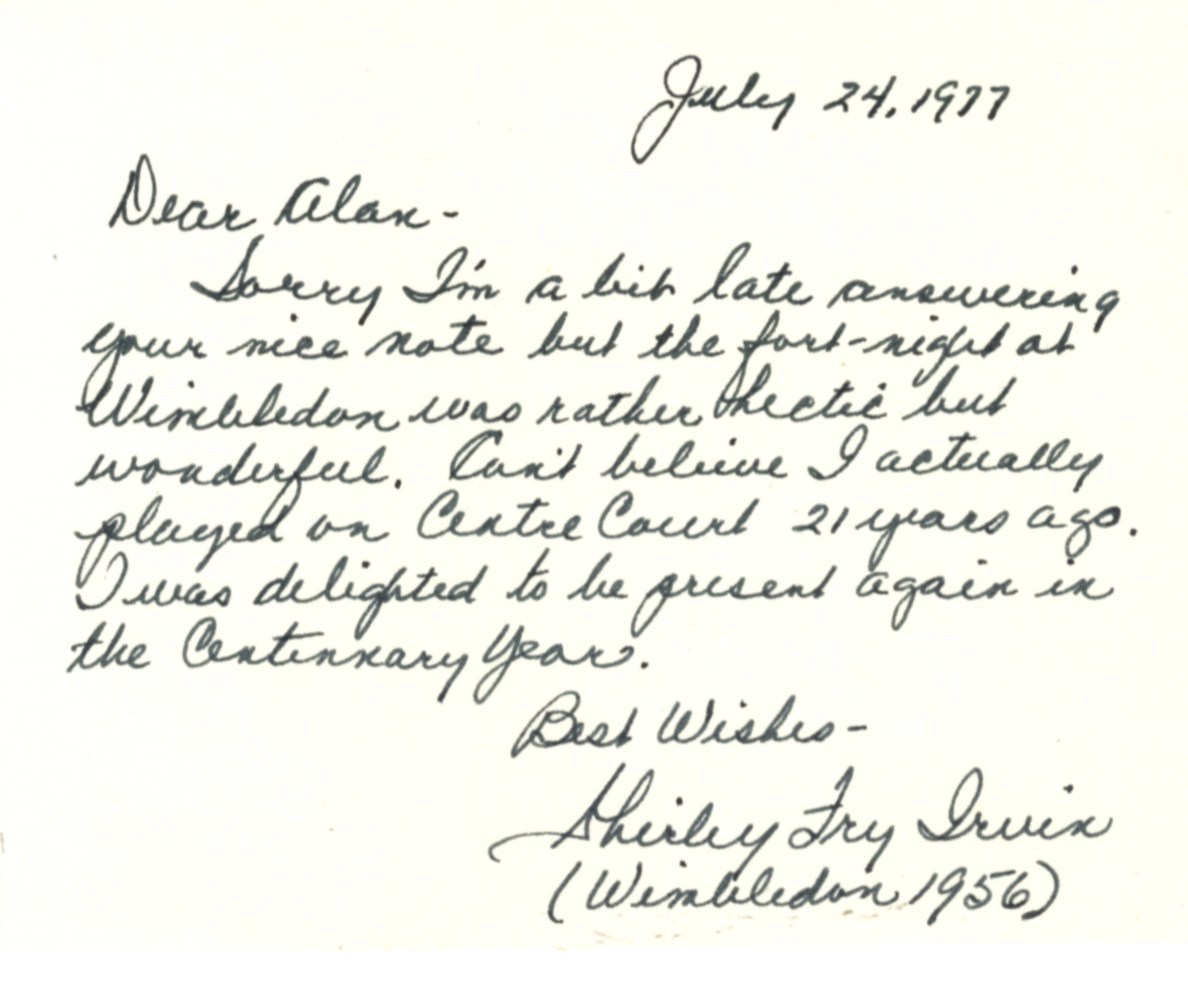 July 24, 1977
Dear Alan-
Sorry I'm a bit late answering
your nice note but the fort-night at
Wimbledon was rather hectic but
wonderful. Can't believe I actually
played on Centre Court 21 years ago.
I was delighted to be present again in
the Centennary Year.
Best Wishes-
Shirley Fry Irvin
(Wimbledon 1956)